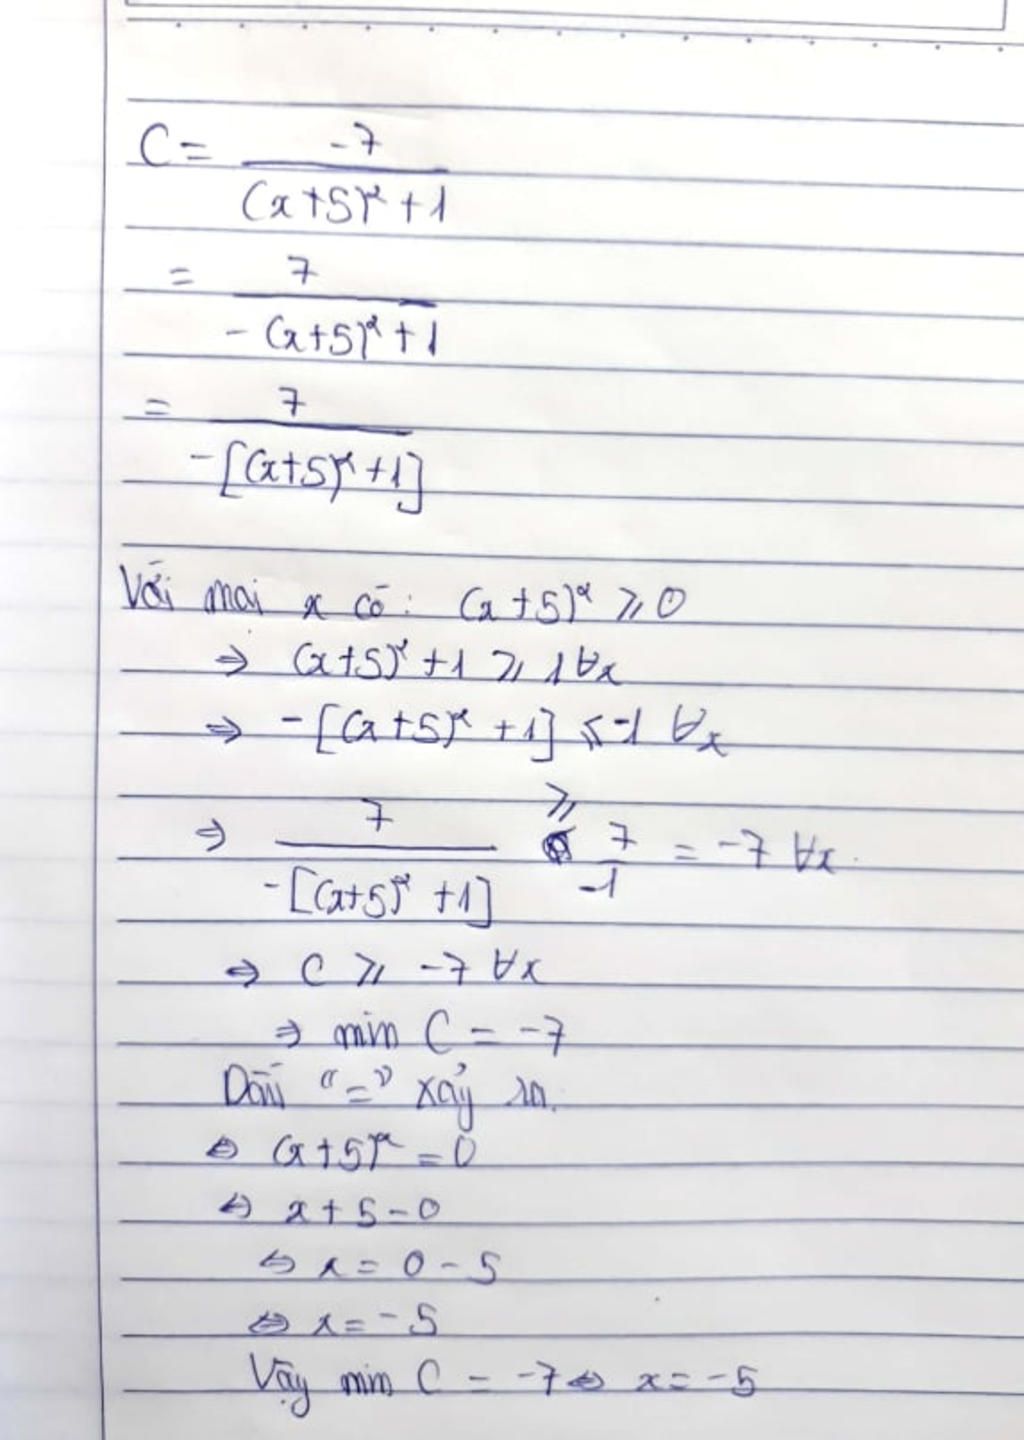 C = -7 / (x+5)² + 1
= 7 / - (x+5)² + 1
= 7 / -[(x+5)² + 1]
Với mọi x có : (x+5)² ⩾ 0
⇒ (x+5)² + 1 ⩾ 1 ∀x
⇒ -[(x+5)² + 1] ⩽ -1 ∀x
⇒ 7 / -[(x+5)² + 1] ⩾ 7 / -1 = -7 ∀x.
⇒ C ⩾ -7 ∀x
⇒ min C = -7
Dấu "=" xảy ra.
⇔ (x+5)² = 0
⇔ x + 5 = 0
⇔ x = 0 - 5
⇔ x = - 5
Vậy min C = -7 ⇔ x = -5